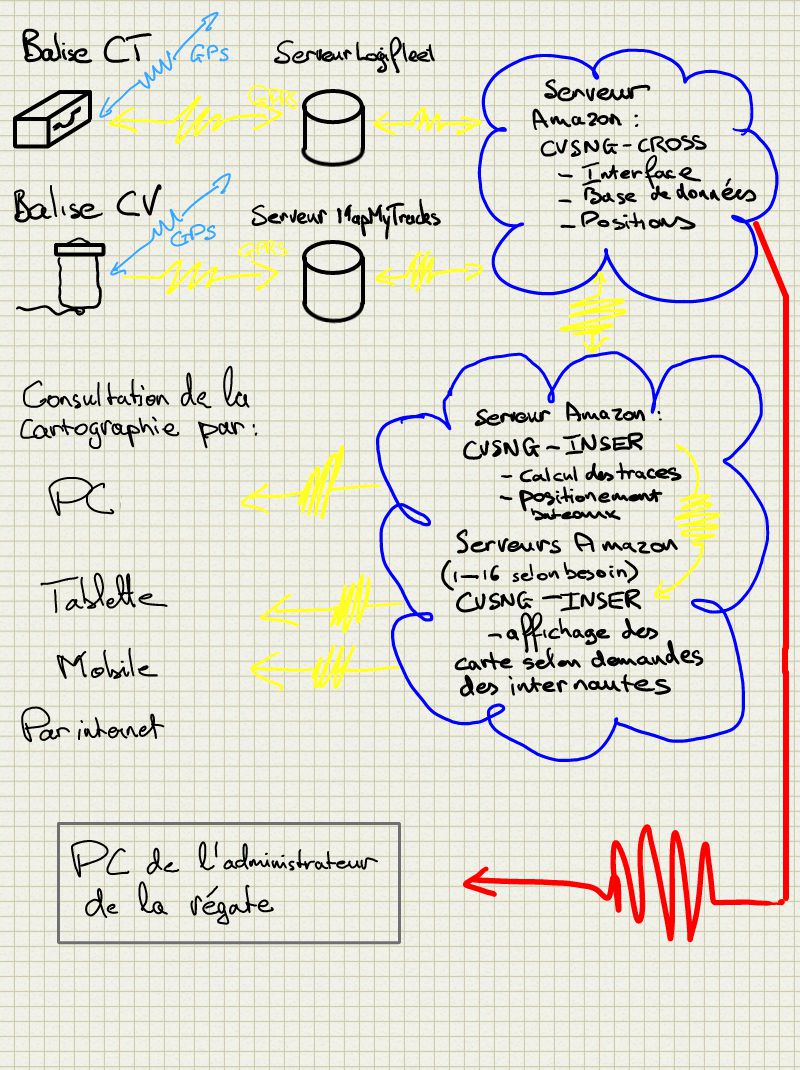 Balise CT
GPs
Serveur Logifleet
GPRS
Serveur
Amazon :
CVSNG-CROSS
- Interface
- Base de données
- Positions
Balise CV
GPs
Serveur MapMyTracks
GPRS
Consultation de la
Cartographie par :
PC
Tablette
Mobile
Par internet
Serveur Amazon :
CVSNG-INSER
- Calcul des traces
- Positionement
bateaux
Serveurs Amazon
(1-16 selon besoin)
CVSNG-INSER
- affichage des
carte selon demandes
des internautes
PC de l'administrateur
de la régate